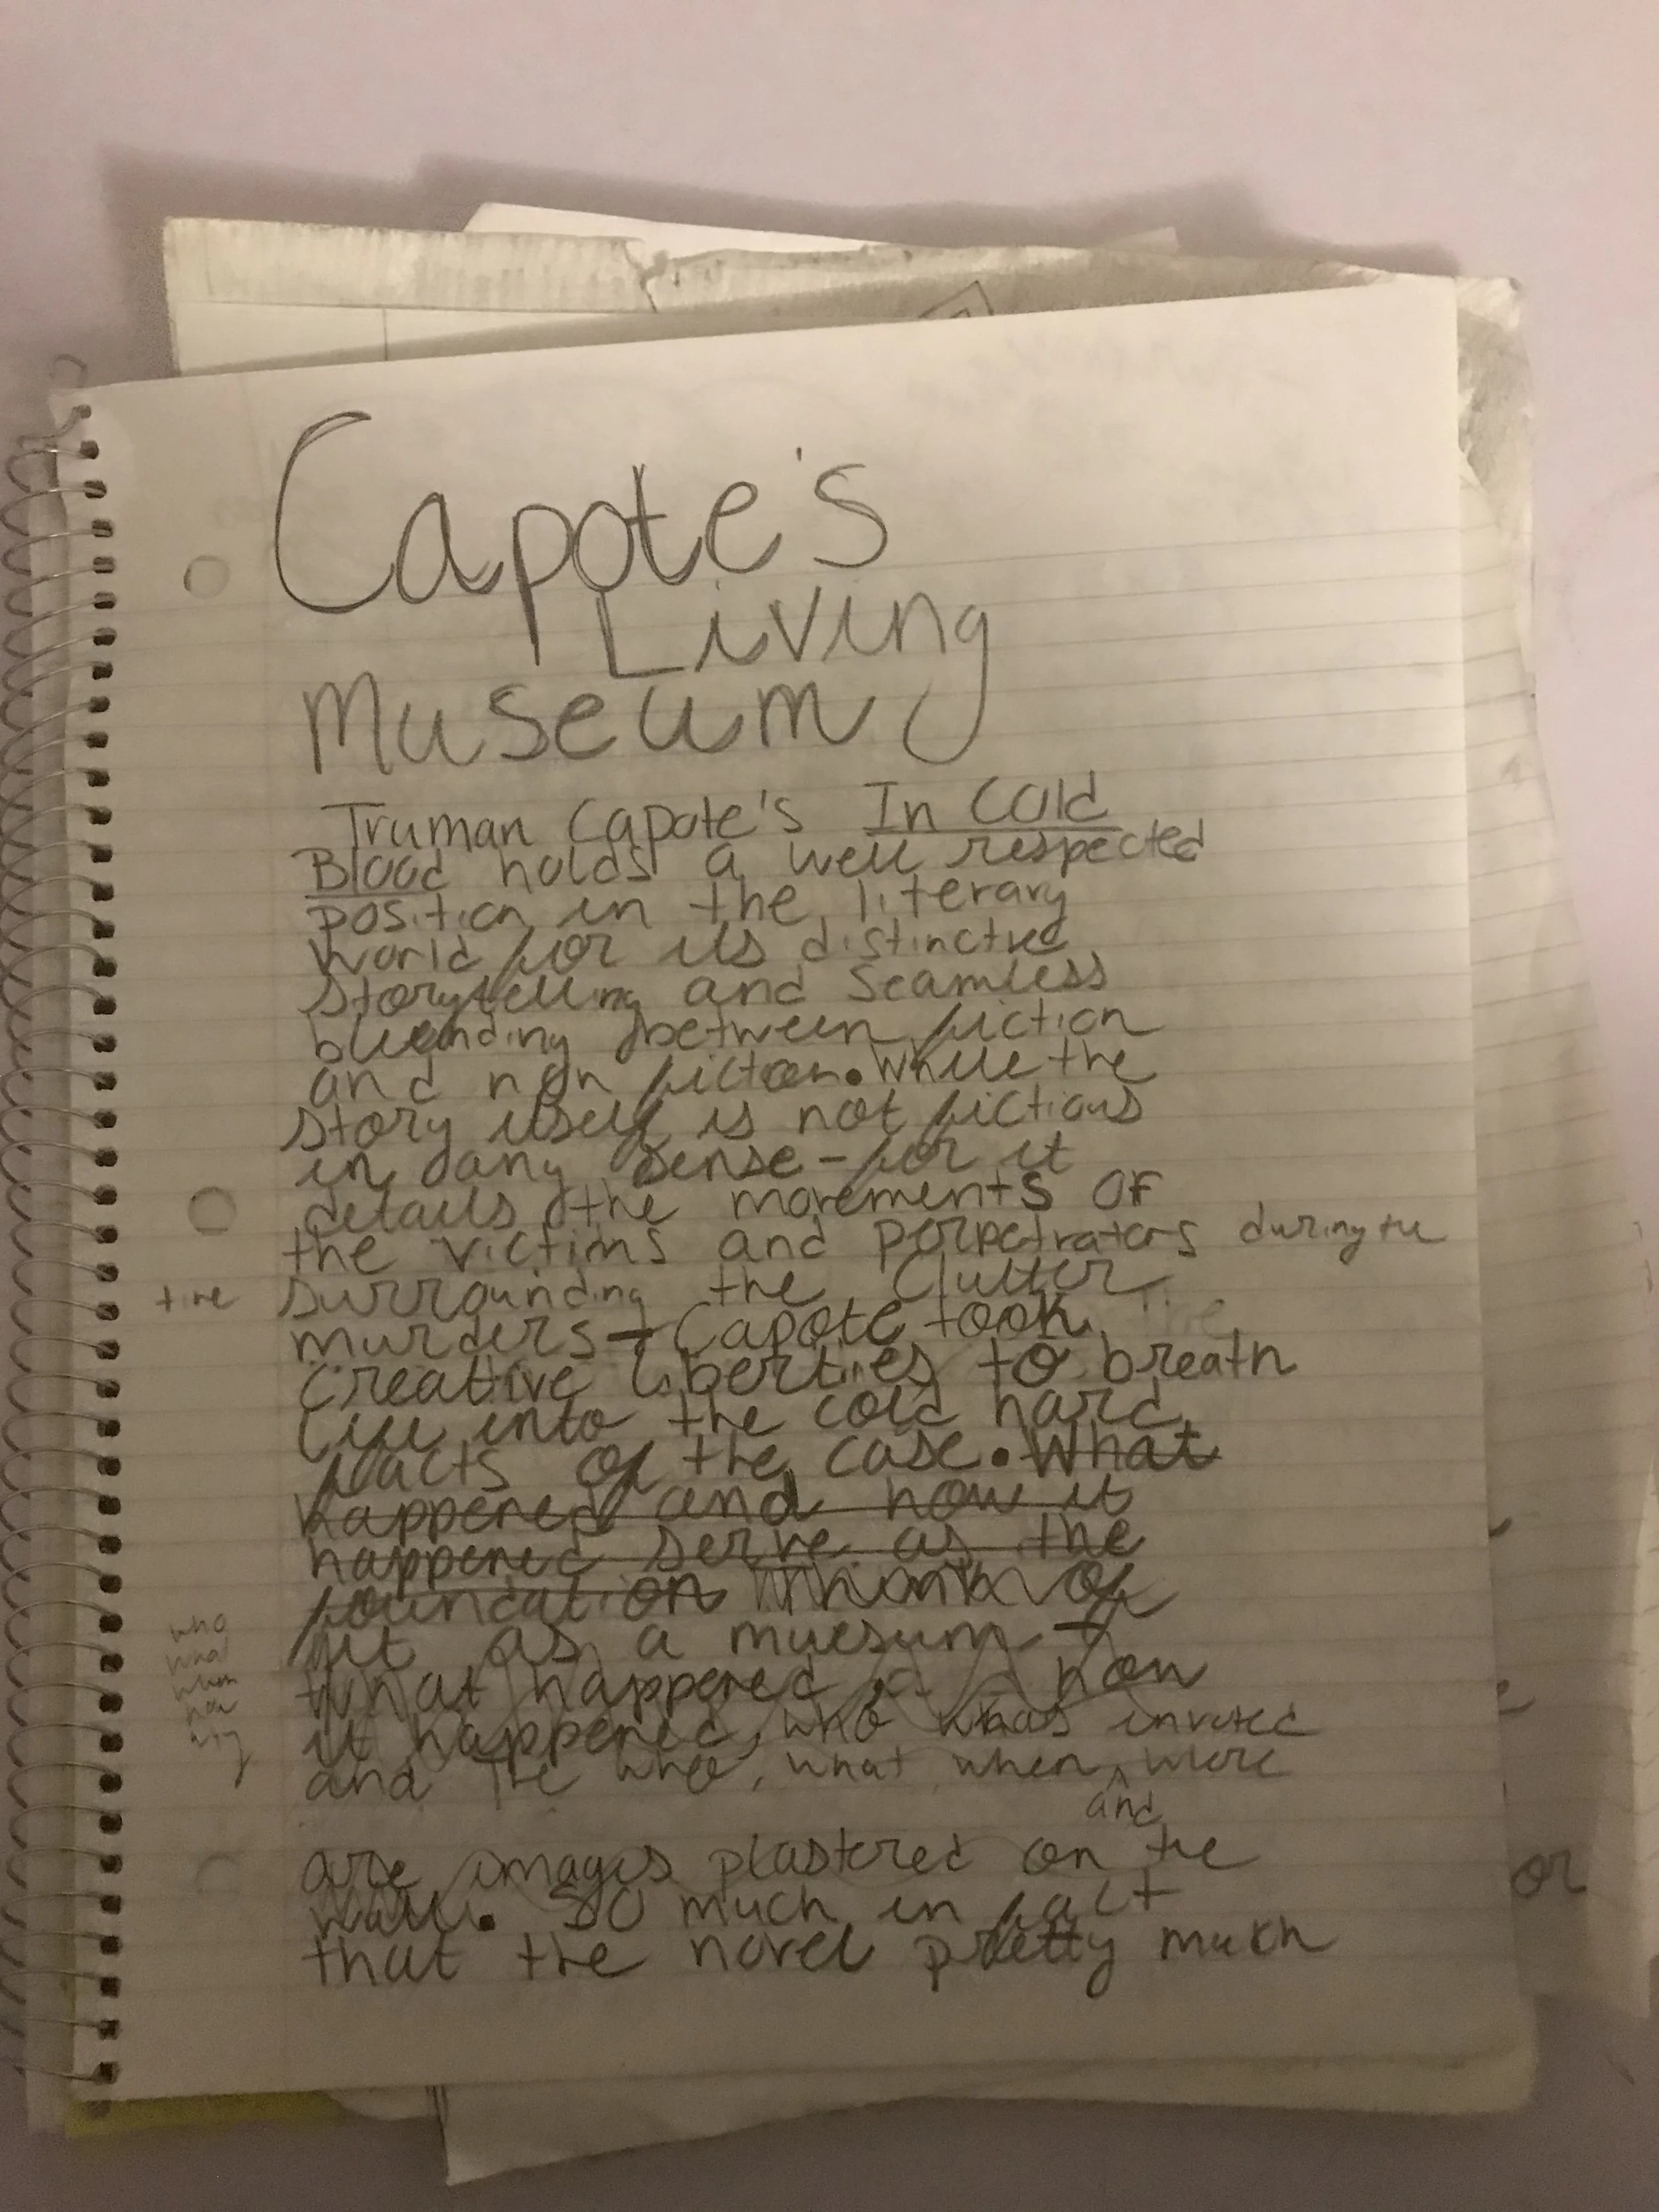 Capote's
Living
Museum
Truman Capote's In Cold
Blood holds a well respected
position in the literary
world for its distinctive
storytelling and seamless
blending between fiction
and non fiction. While the
story itself is not fictious
in any sense - for it
details the movements of
the victims and perpetrators during the
time surrounding the Clutter
murders - Capote took
creative liberties to breath
life into the cold hard
facts of the case. What
happened and how it
happened serve as the
foundation Think of
it as a muesum -
What happened how
it happened, who was invoted
who
what
when
how
why
and the who, what when, where
and
are images plastered on the
wall. So much in fact
that the novel pretty much
or